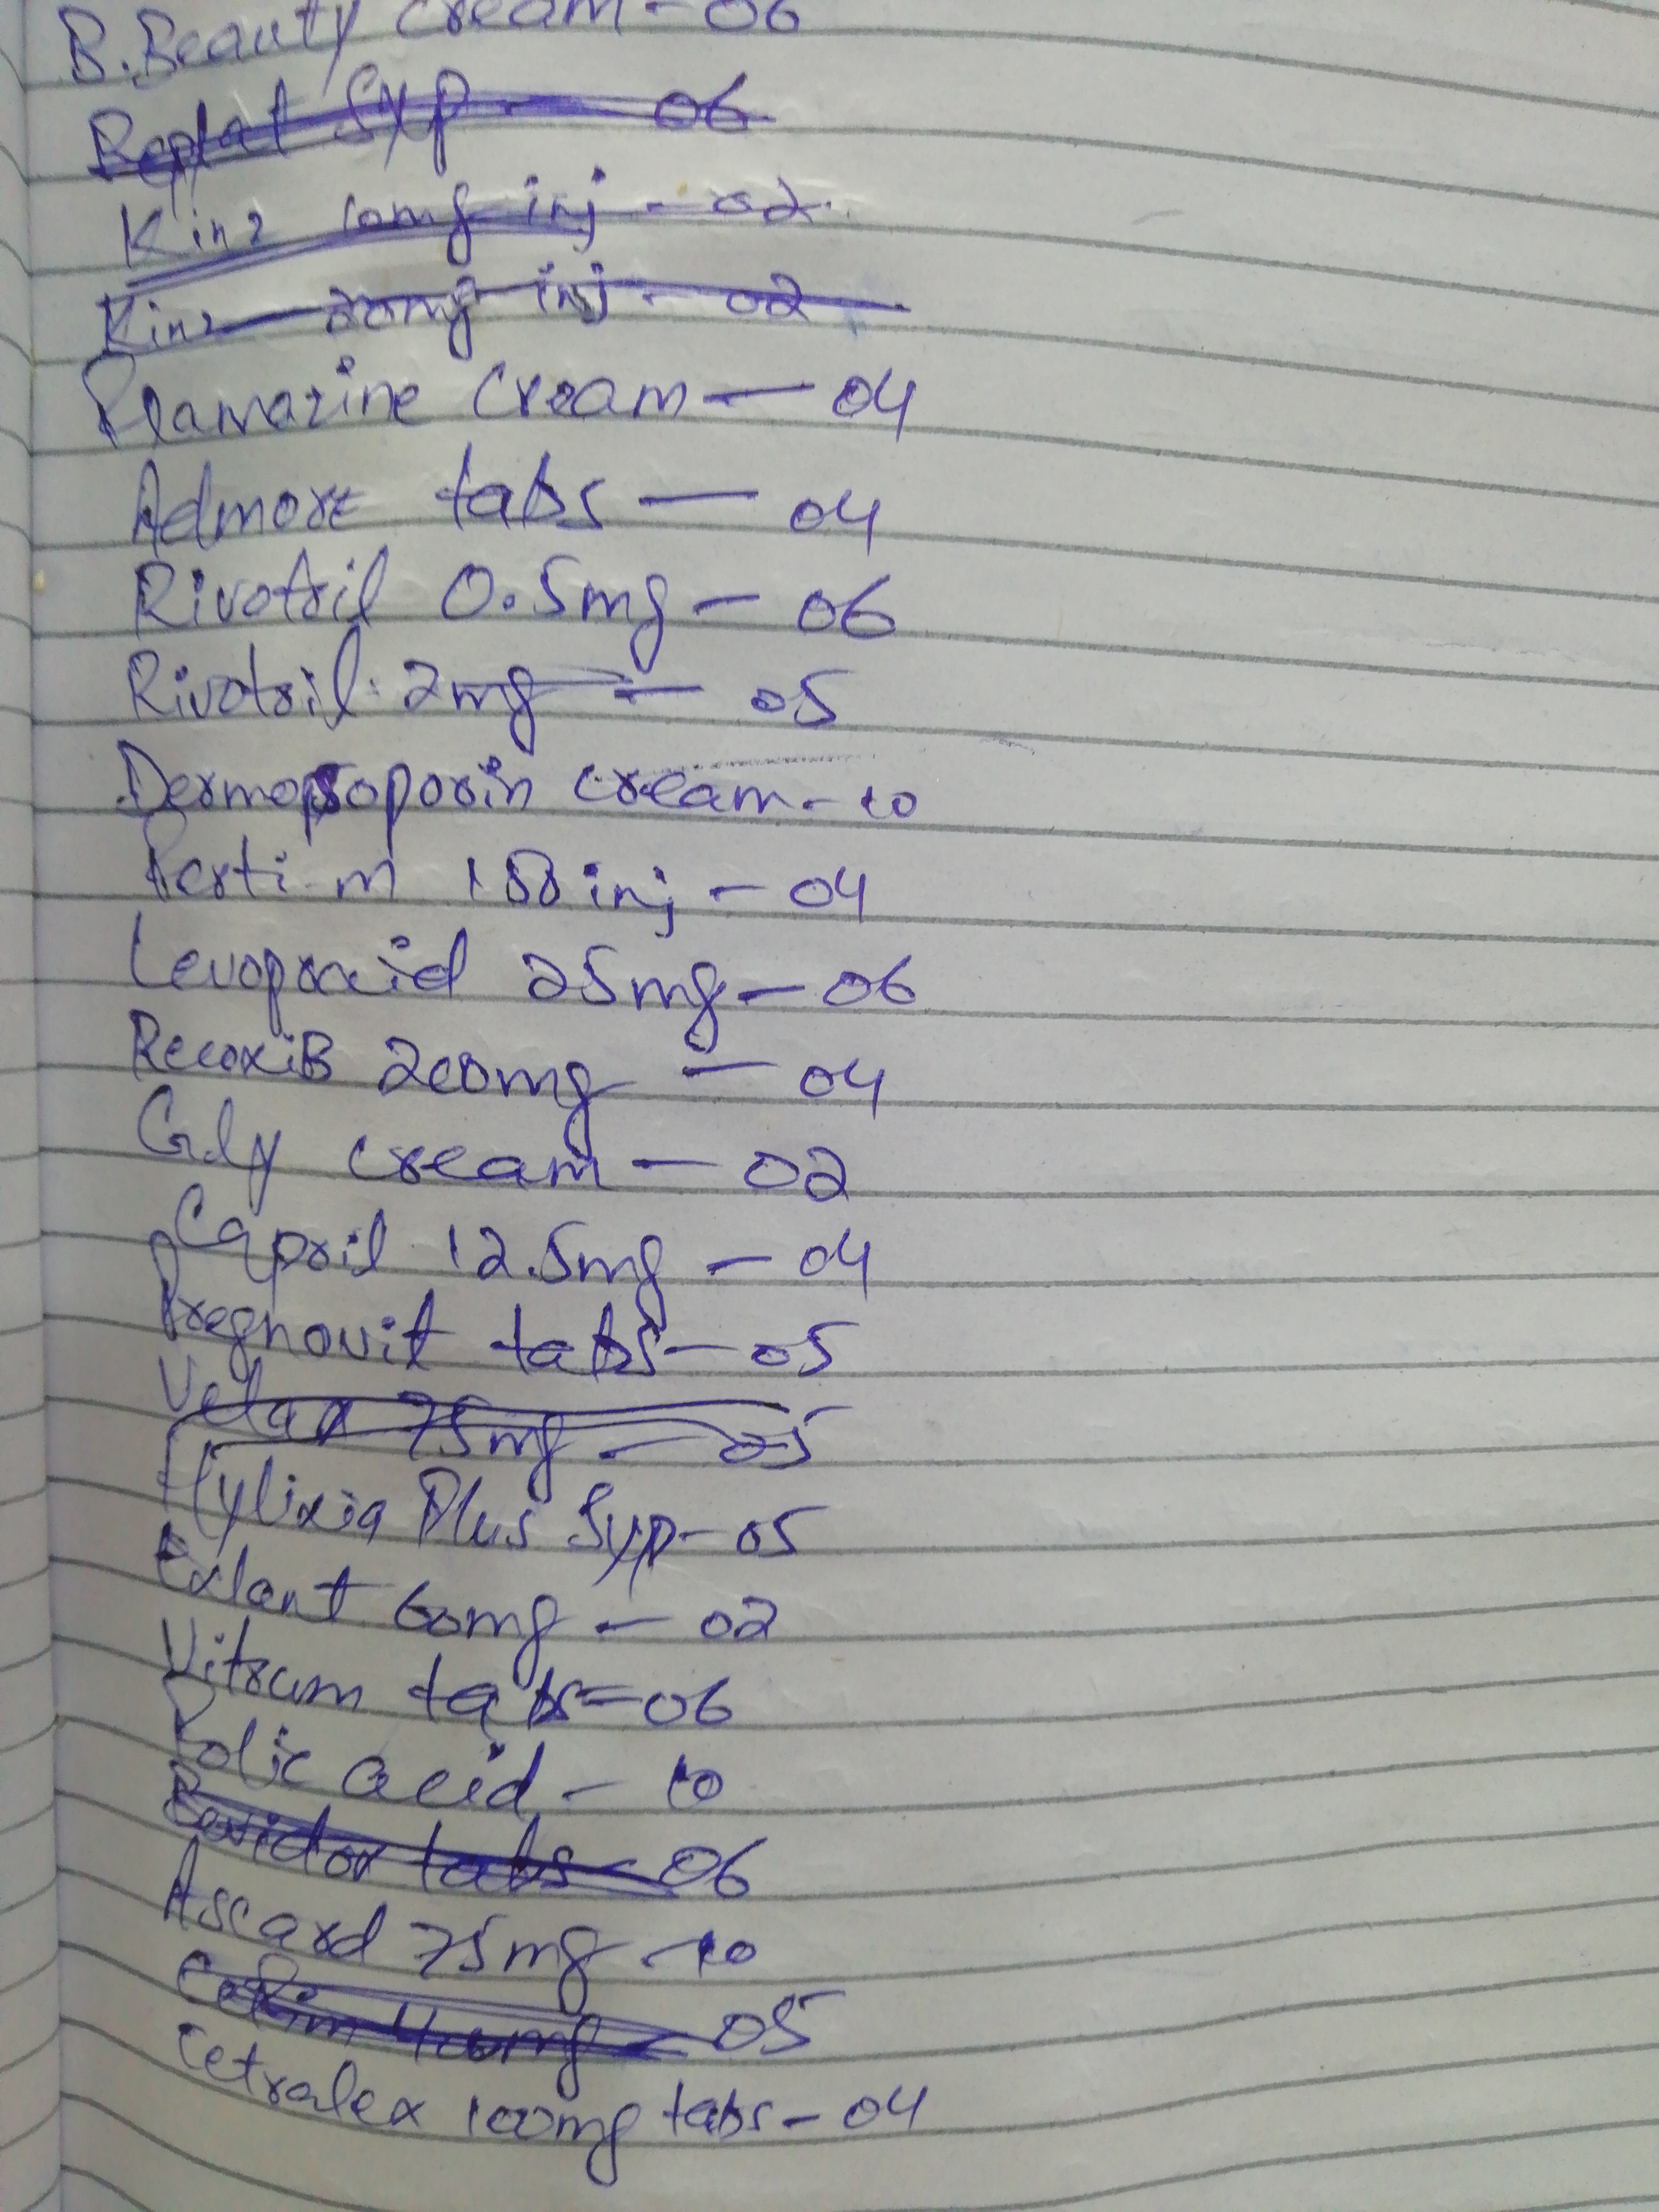 B.Beauty cream - 06
Replat Syp - 06
Kinz 10mg inj - 02
Kinz 20mg inj - 02
Flamazine Cream - 04
Admore tabs - 04
Rivotril 0.5mg - 06
Rivotril 2mg - 05
Dermosporin cream - 10
Ferti-m inj - 04
Levopraid 25mg - 06
RecoxiB 200mg - 04
G.ly cream - 02
Capril 12.5mg - 04
Pregnovit tabs - 05
Velax 75mg - 05
Hylixia Plus Syp - 05
Exlant 60mg - 02
Vitrum tabs = 06
Folic acid - 10
Bevidox tabs - 06
Ascard 75mg - 10
Cefim 400mg - 05
Cetralex 100mg tabs - 04